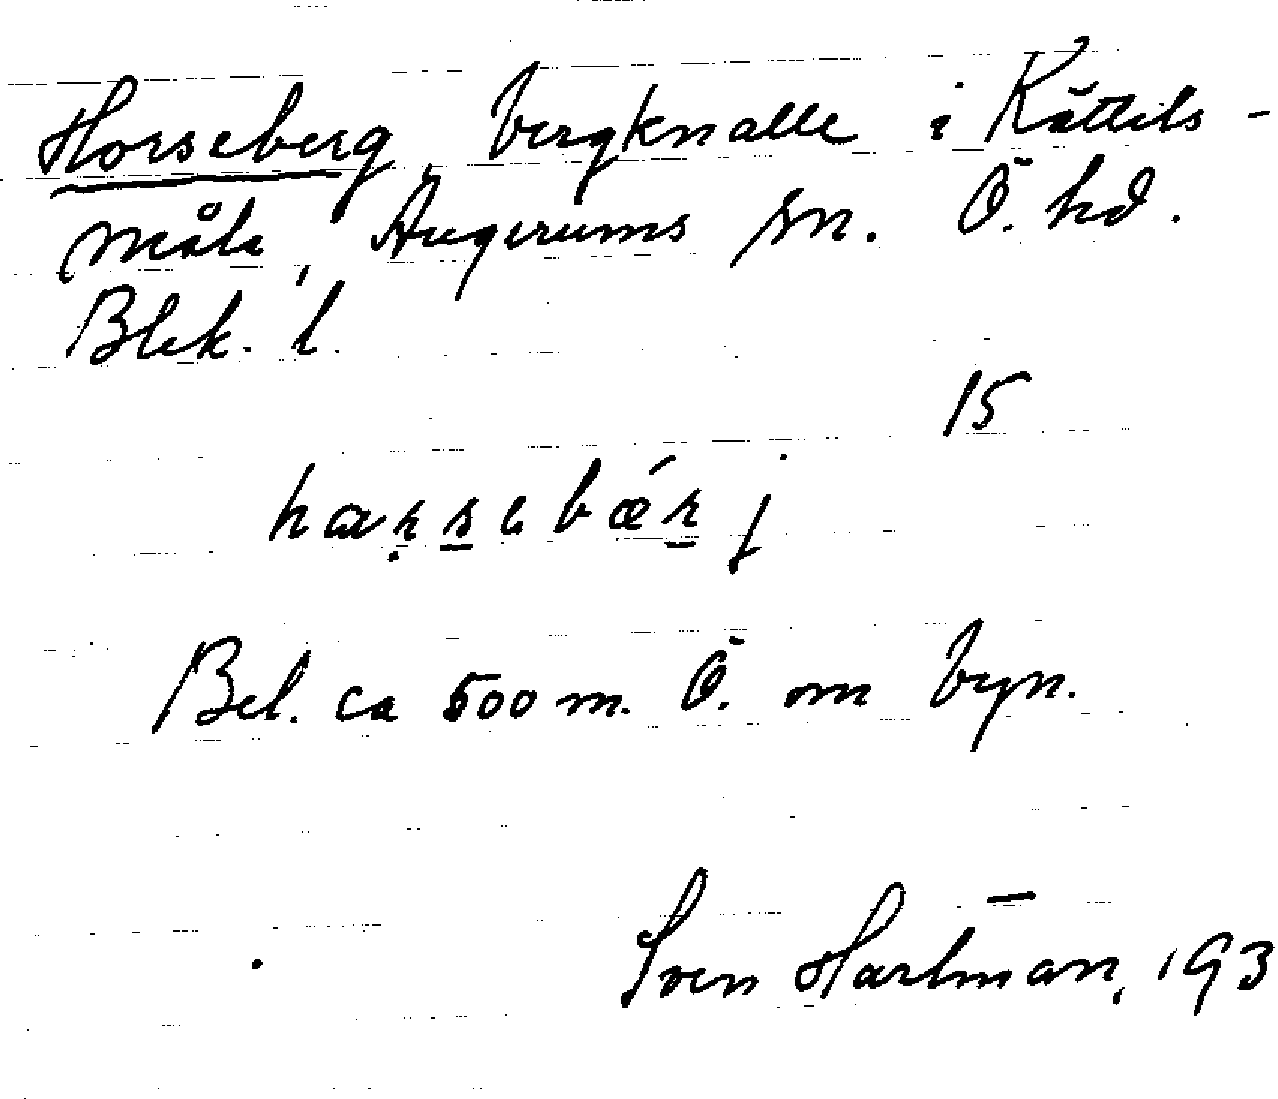 Horseberg, bergknalle i Kättils-
måla, Augerums sn. Ö. hd.
Blek. l.
15
Bel. ca 500 m. Ö. om byn.
Sven Hartman, 193